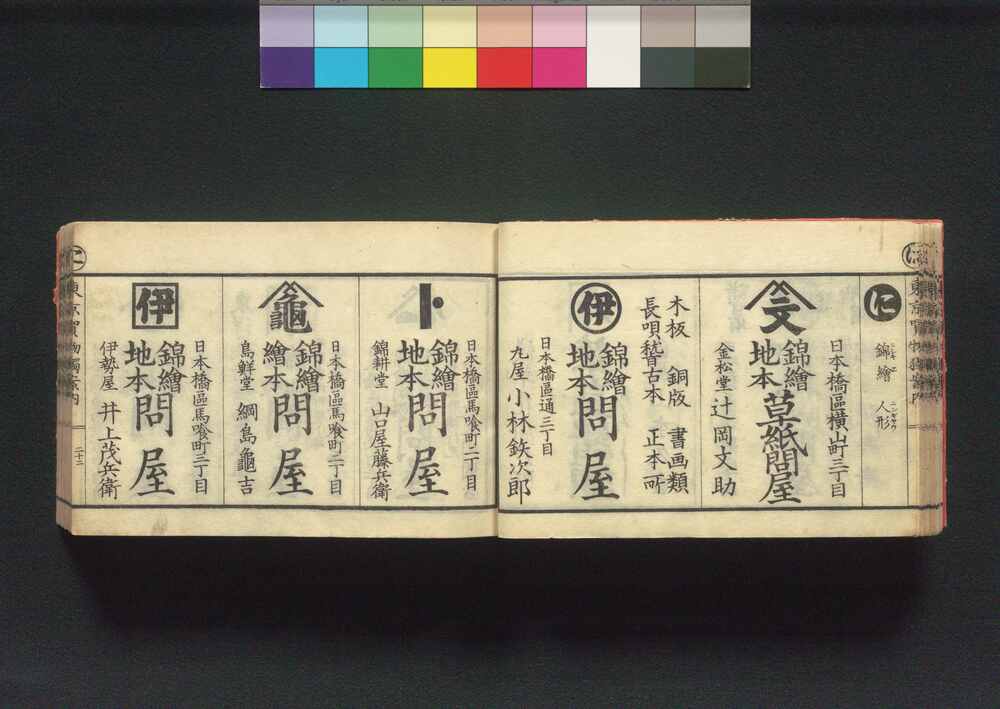 に
錦繪 人形
ニンギヤウ
文
日本橋區橫山町三丁目
錦繪
地本
草紙問屋
金松堂 辻岡文助
木板 銅版 書画類
長唄稽古本 正本所
伊
錦繪
地本
問屋
日本橋區通三丁目
丸屋 小林鉄次郎
ト
日本橋區馬喰町二丁目
錦繪
地本
問屋
錦耕堂 山口屋藤兵衛
龜
日本橋區馬喰町二丁目
錦繪
繪本
問屋
島鮮堂 綱島龜吉
伊
日本橋區馬喰町三丁目
錦繪
地本
問屋
伊勢屋 井上茂兵衛
に
東京買物獨案内
二十二